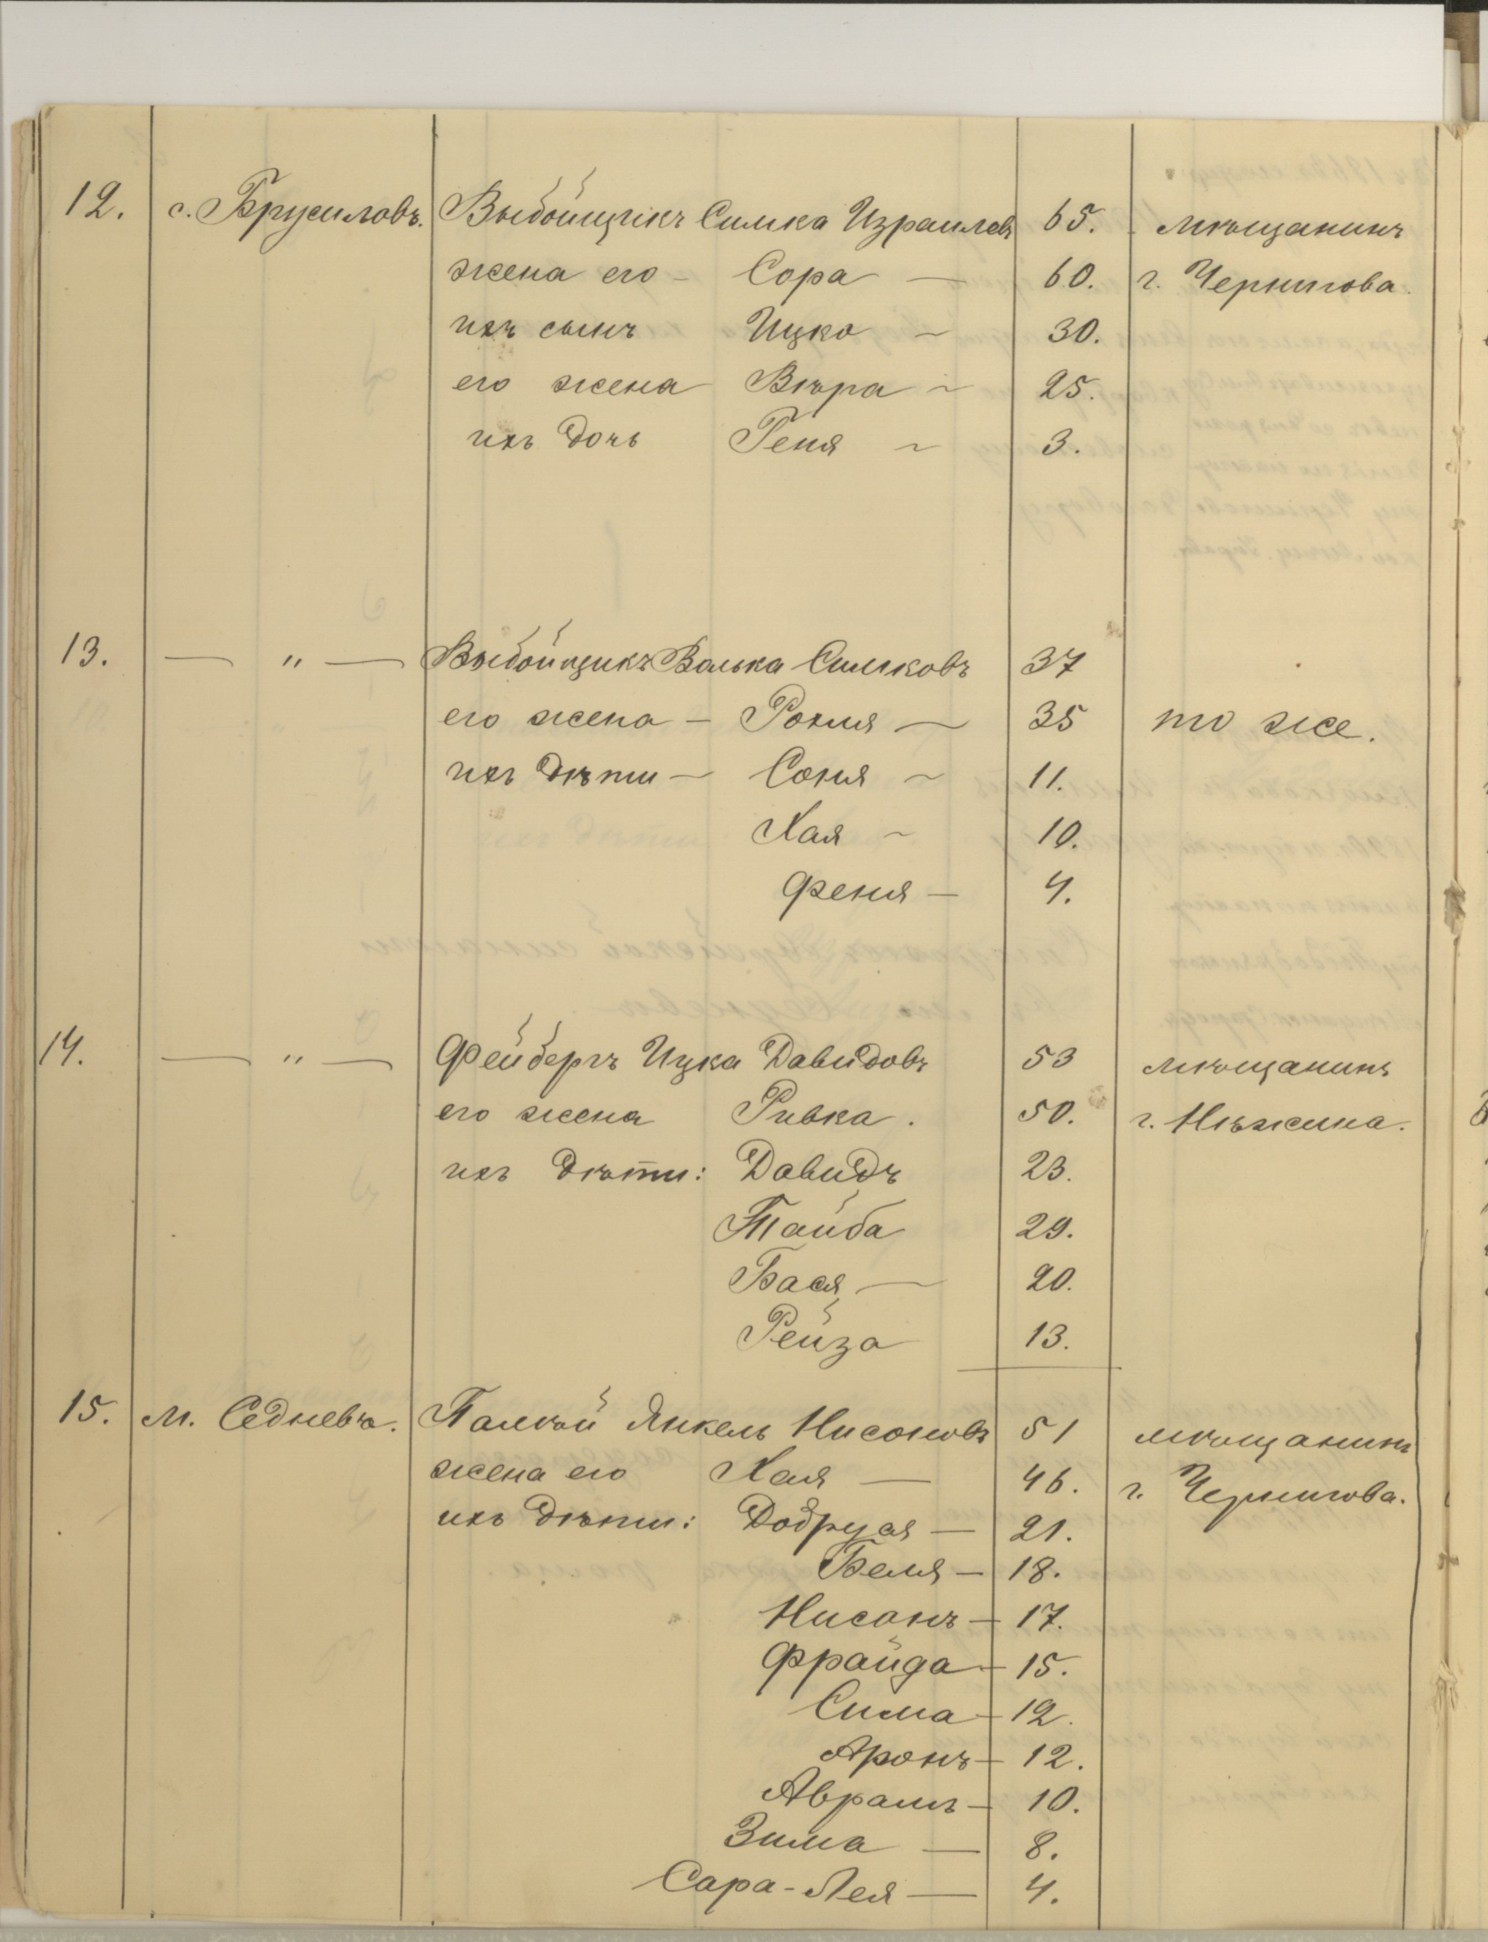 12. с. Брусиловъ. Выбойщикъ Симка Израилевъ 65. мѣщанинъ
жена его – Сора — 60. г. Чернигова.
ихъ сынъ Ицко ~ 30.
его жена Вѣра ~ 25.
ихъ дочь Геня ~ 3.
13. — " — Выбойщикъ Волька Симковъ 37
его жена – Рохля — 35 то же.
ихъ дѣти – Соня ~ 11.
Хая ~ 10.
Феня — 4.
14. — " — Фейбергъ Ицка Давидовъ 53 мѣщанинъ
его жена Ривка . 50. г. Нѣжина.
ихъ дѣти: Давидъ 23.
Тайба 29.
Бася — 20.
Рейза 13.
15. м. Седневъ. Палѣй Янкель Нисоновъ 51 мѣщанинъ
жена его Хая — 46. г. Чернигова.
ихъ дѣти: Добруся — 21.
Беля — 18.
Нисонъ — 17.
Фрайда — 15.
Сима — 12.
Аронъ — 12.
Аврамъ — 10.
Зима — 8.
Сара-Лея — 4.